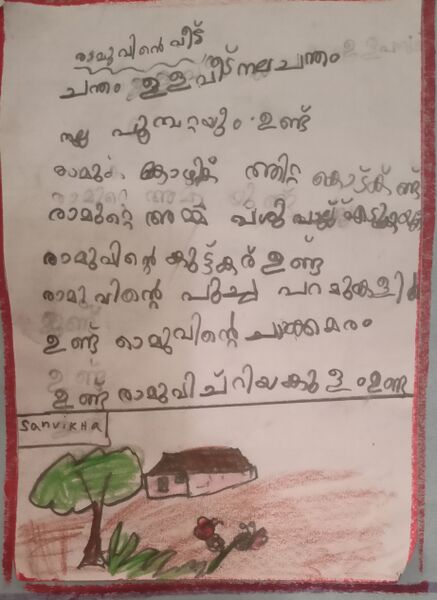 രാമുവിൻെ വീട്
ചന്തം ഉള്ള വീട് നല്ല ചന്തം
നല്ല പൂമ്പറ്റയും ഉണ്ട്
രാമും കോഴിക്ക് ത്തിറ്റ കൊട്ക്ക് ണ്ട്
രാമുറെ അമ്മ പശു പാല്
രാമുവിൻെറ കുട്ട്കര് ഉണ്ട്
രാമുവിൻെറ പുച്ച പറമുകളിൽ
ഉണ്ട് രാമുവിൻെറ ചക്കമരം
ഉണ്ട് രാമുവി ച്റിയ കുളം ഉണ്ട
Sanvikha